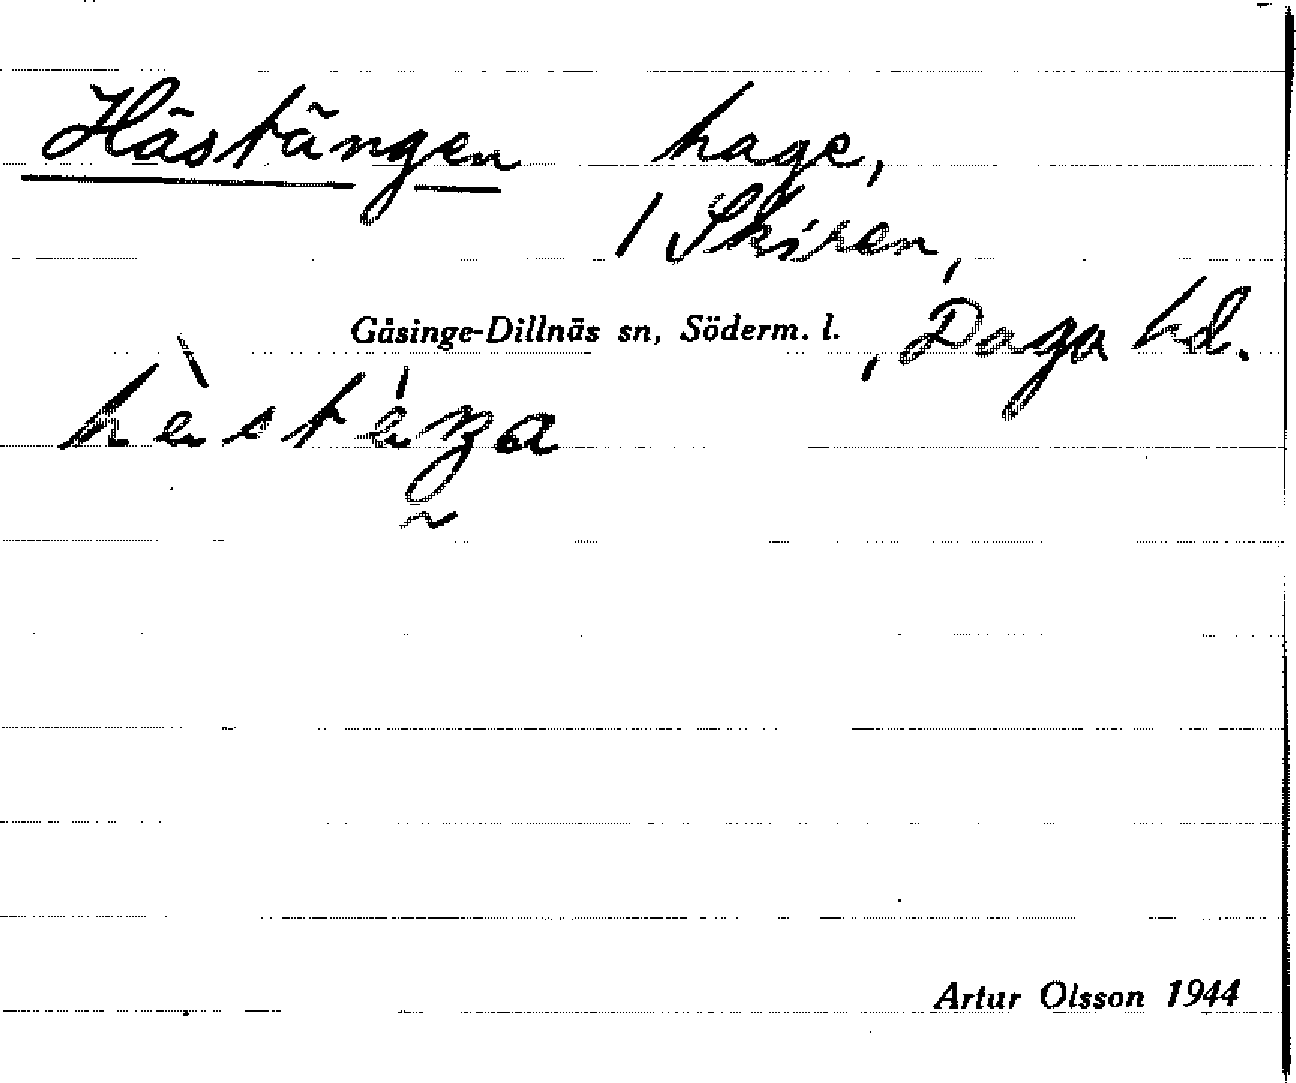 Hästängen hage,
/ Skiren,
Gåsinge-Dillnäs sn, Söderm. l., Daga hd.
Artur Olsson 1944